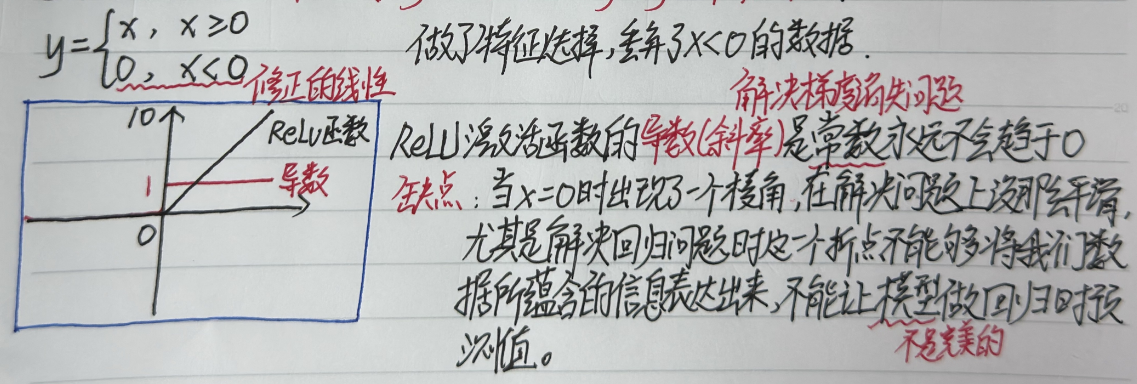 y={x, x≥0
0, x<0
修正的线性
做了特征选择,丢弃了x<0的数据.
解决梯度消失问题
10
ReLU函数
1
导数
0
ReLU激活函数的导数(斜率)是常数永远不会趋于0
缺点:当x=0时出现了一个棱角,在解决问题上没那么平滑,
尤其是解决回归问题时这一个折点不能够将我们数
据所蕴含的信息表达出来,不能让模型做回归时预
测值。
不是完美的